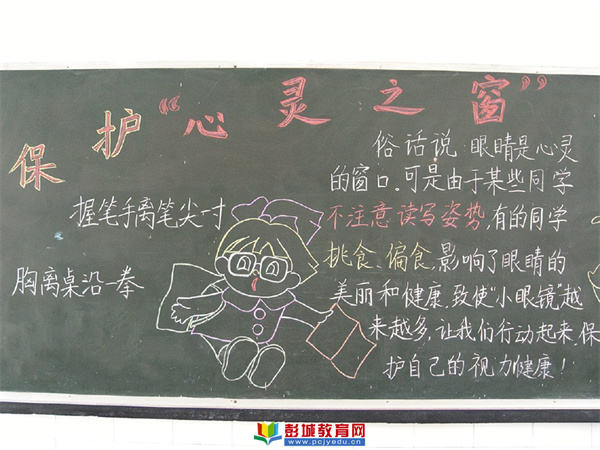 保护“心灵之窗”
握笔手离笔尖一寸
胸离桌沿一拳
俗话说:眼睛是心灵
的窗口,可是由于某些同学
不注意读写姿势,有的同学
挑食、偏食,影响了眼睛的
美丽和健康,致使“小眼镜”越
来越多,让我们行动起来,保
护自己的视力健康!
彭城教育网
www.pcjyedu.cn